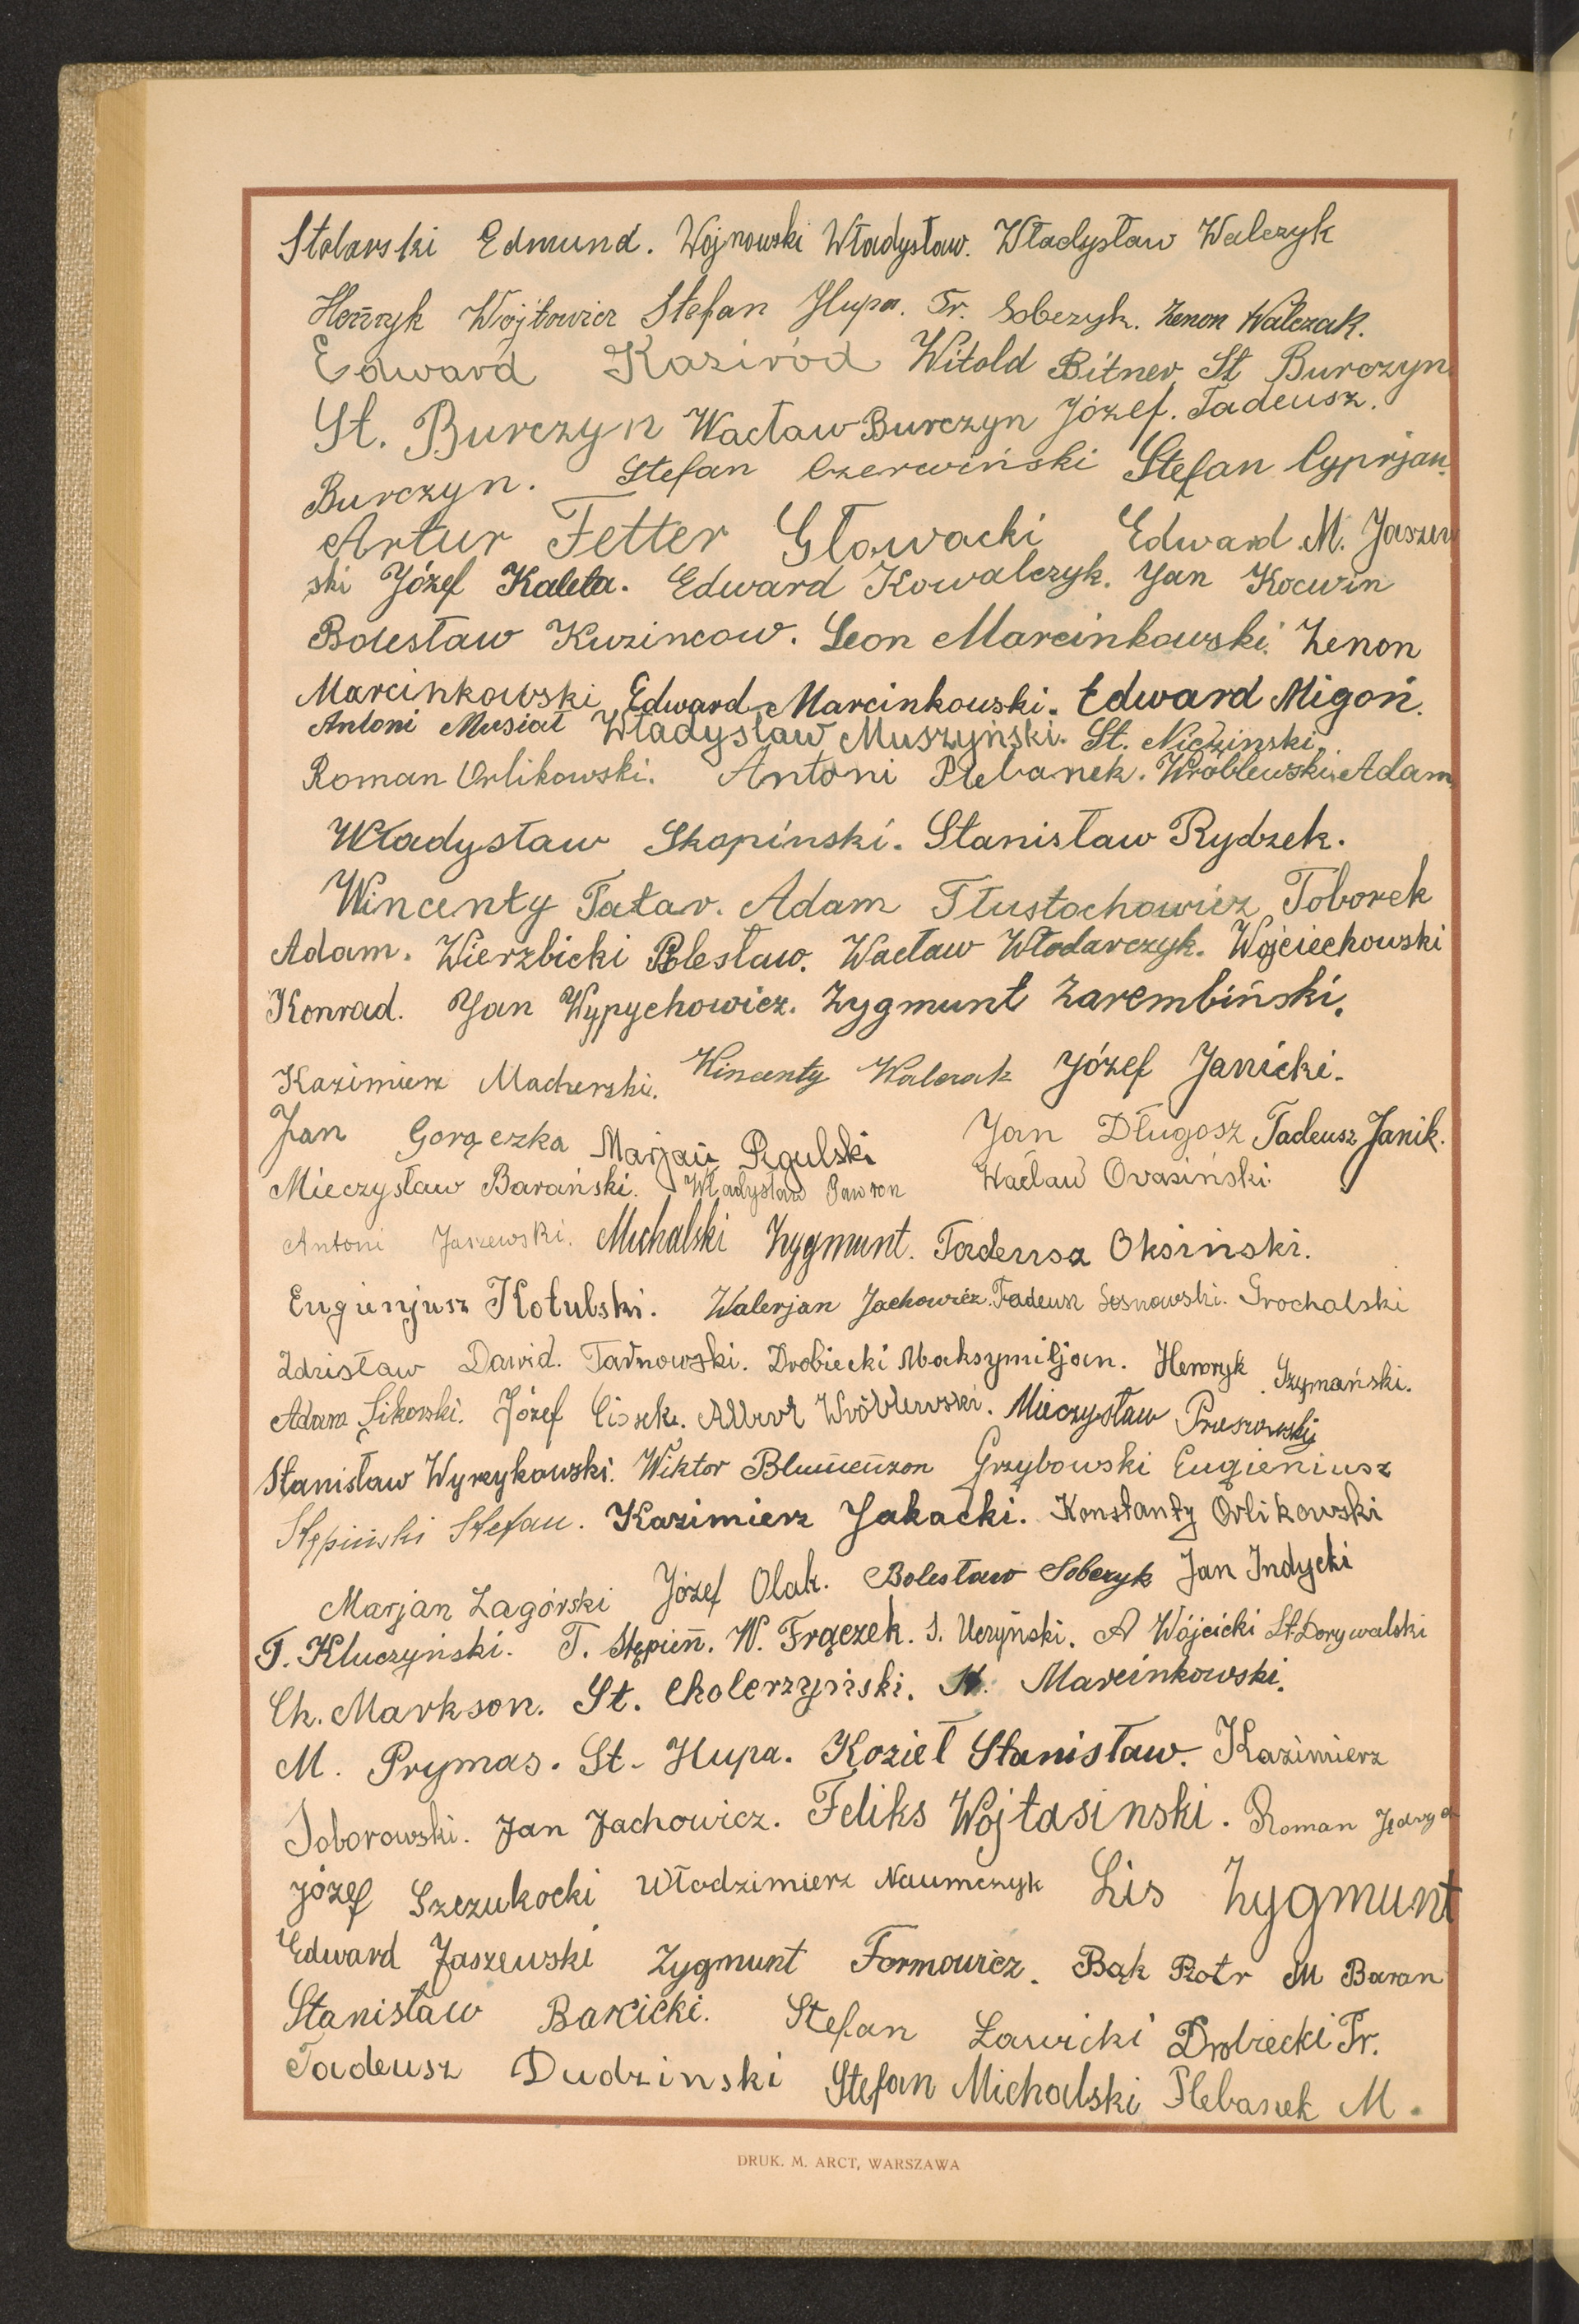 Stolarski Edmund. Wojnowski Władysław. Władysław Walczyk
Henryk Wojtowicz Stefan Hupa. Fr. Sobczyk. Zenon Walczak.
Edward Kaziród Witold Bitner St Burczyn
St. Burczyn Wacław Burczyn Józef. Tadeusz.
Burczyn. Stefan Czerwiński Stefan Cyprjan
Artur Fetter Głowacki Edward M. Jaszew
ski Józef Kaleta. Edward Kowalczyk. Jan Kocwin
Bolesław Kuzincow. Leon Marcinkowski. Zenon
Marcinkowski Edward Marcinkowski. Edward Migoń.
Antoni Musiał Władysław Muszyński. St. Niciński
Roman Orlikowski. Antoni Plebanek. Wróblewski Adam
Władysław Skopiński. Stanisław Rydzek.
Wincenty Tatar. Adam Tłustochowicz Toborek
Adam. Wierzbicki Bolesław. Wacław Włodarczyk. Wojciechowski
Konrad. Jan Wypychowicz. Zygmunt Zarembiński.
Kazimierz Macherski. Wincenty Walczak Józef Janicki.
Jan Gorączka Marjan Regulski Jan Długosz Tadeusz Janik.
Mieczysław Barański. Władysław Pawron Wacław Owasiński.
Antoni Jaszewski. Michalski Zygmunt. Tadeusz Oksinski.
Eugienjusz Kotulski. Walerjan Jachowicz. Tadeusz Sosnowski. Grochalski
Zdzisław Dawid. Tarnowski. Drobiecki Maksymiljan. Henryk Szymański.
Adam Sikorski. Józef Ciosek. Albert Wróblewski. Mieczysław Pruszowski
Stanisław Wyrzykowski. Wiktor Blumenzon Grzybowski Eugieniusz
Stępiński Stefan. Kazimierz Jakacki. Konstanty Orlikowski
Marjan Zagórski Józef Olak. Bolesław Sobczyk Jan Indycki
T. Kluczyński. T. Stępień. W. Frączek. S. Uczyński. A Wójcicki St. Dorywalski
Ch. Markson. St. Cholerzyński. St. Marcinkowski.
M. Prymas. St. Hupa. Kozieł Stanisław. Kazimierz
Soborowski. Jan Jachowicz. Feliks Wojtasinski. Roman
Józef Szczukocki Włodzimierz Naumczyk Lis Zygmunt
Edward Jaszewski Zygmunt Formowicz. Bąk Piotr M Baran
Stanisław Barcicki. Stefan Ławicki Drobiecki Fr.
Tadeusz Dudzinski Stefan Michalski Plebanek M.
DRUK. M. ARCT, WARSZAWA